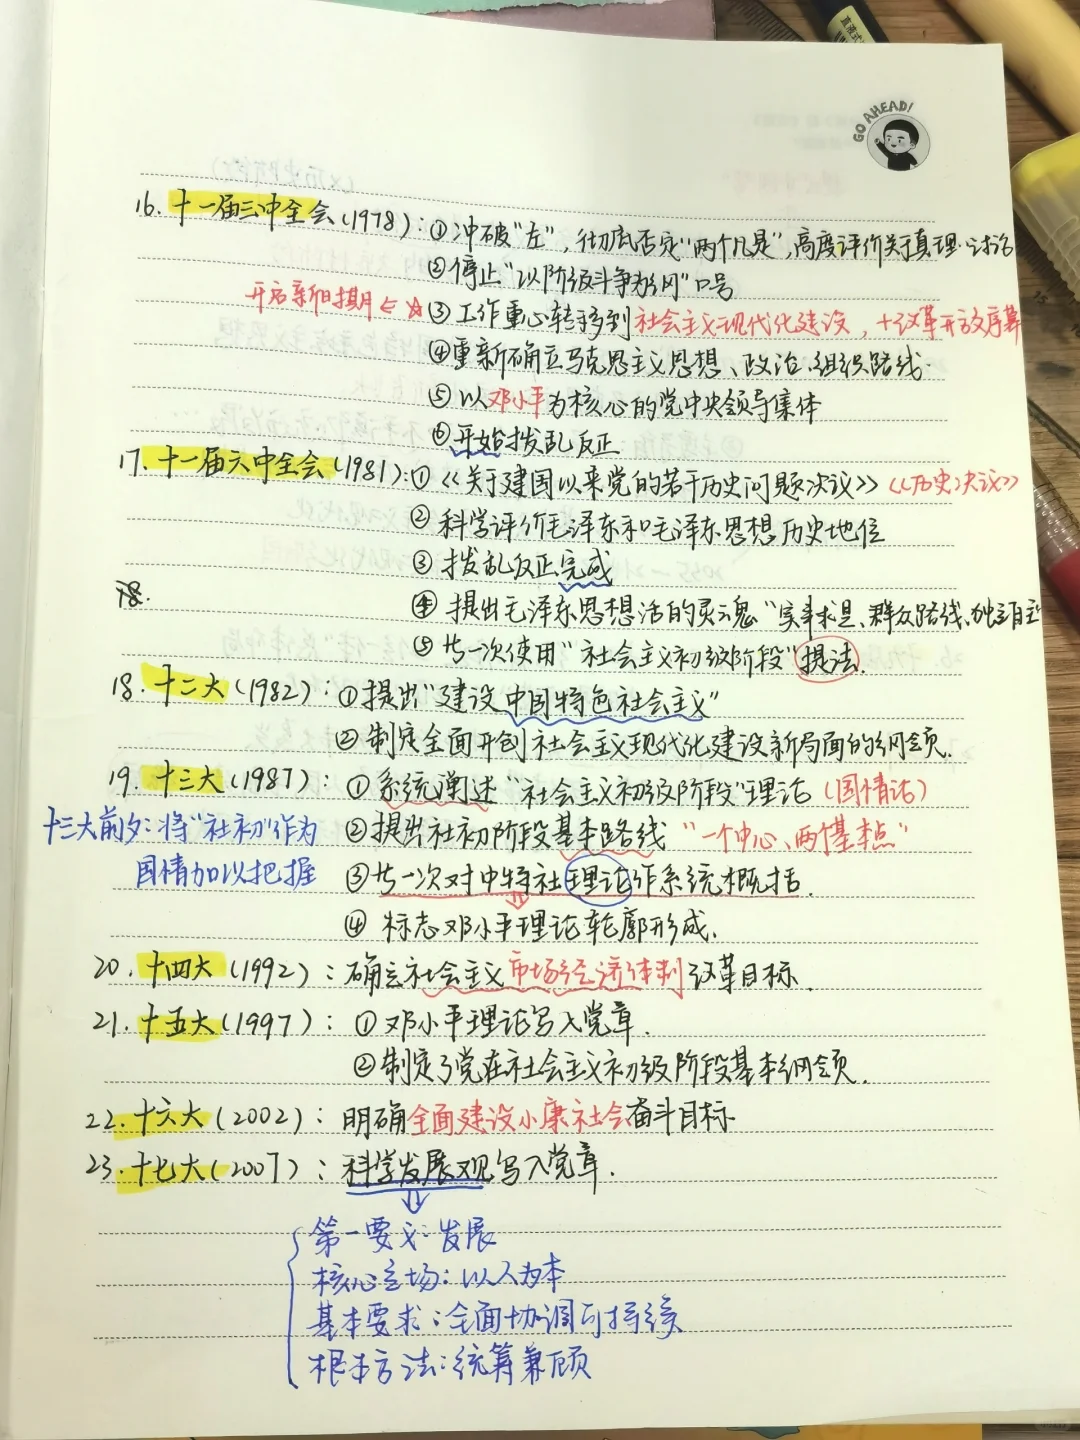 GO AHEAD!
16. 十一届三中全会(1978)：①冲破"左"，彻底否定"两个凡是"，高度评价关于真理…讨论
②停止"以阶级斗争为纲"口号
开启新时期 ⇐ ☆ ③工作重心转移到社会主义现代化建设，+改革开放序幕
④重新确立马克思主义思想、政治、组织路线.
⑤以邓小平为核心的党中央领导集体
⑥开始拨乱反正
17. 十一届六中全会(1981)：①《关于建国以来党的若干历史问题决议》《历史决议》
②科学评价毛泽东和毛泽东思想历史地位
③拨乱反正完成
18.
④提出毛泽东思想活的灵魂"实事求是、群众路线、独立自主
⑤第一次使用"社会主义初级阶段"提法.
18. 十二大(1982)：①提出"建设中国特色社会主义"
②制定全面开创社会主义现代化建设新局面的纲领.
19. 十三大(1987)：①系统阐述"社会主义初级阶段"理论(国情话)
十三大前夕：将"社初"作为
②提出社初阶段基本路线 "一个中心、两个基本点"
国情加以把握
③第一次对中特社理论作系统概括.
④标志邓小平理论轮廓形成.
20. 十四大(1992)：确立社会主义市场经济体制改革目标.
21. 十五大(1997)：①邓小平理论写入党章.
②制定了党在社会主义初级阶段基本纲领.
22. 十六大(2002)：明确全面建设小康社会奋斗目标
23. 十七大(2007)：科学发展观写入党章.
第一要义：发展
核心立场：以人为本
基本要求：全面协调可持续
根本方法：统筹兼顾